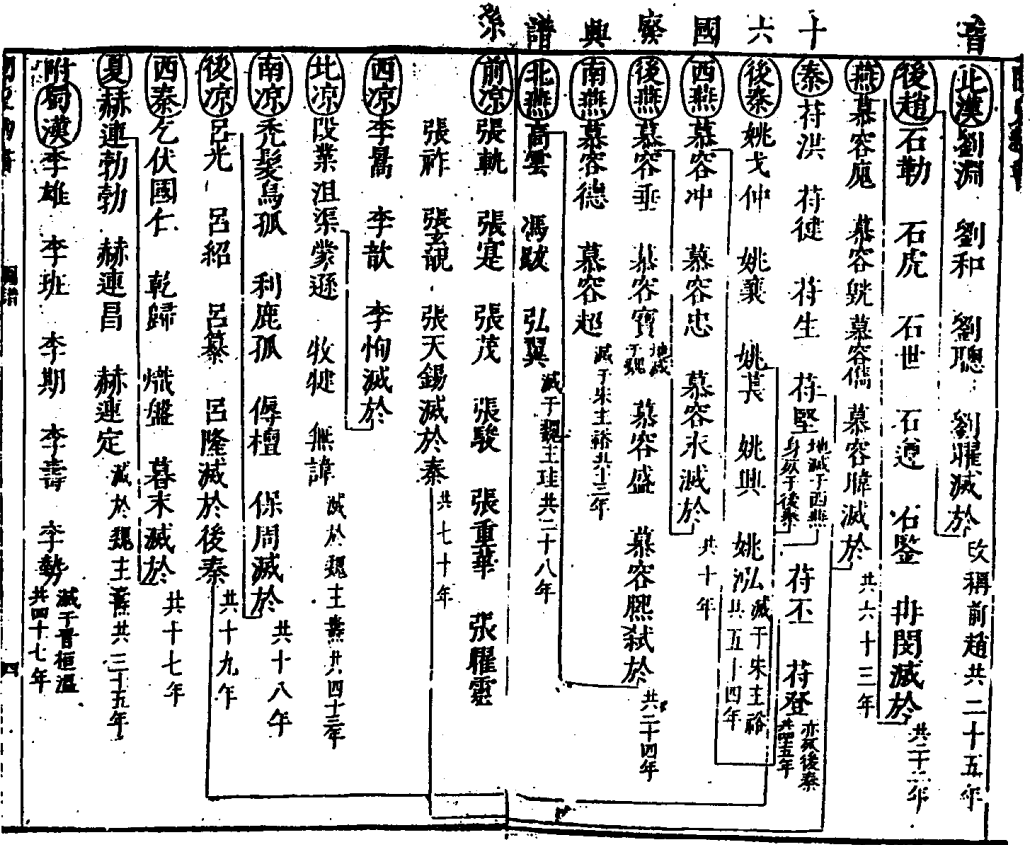 晉十六國廢興譜系
北漢劉淵 劉和 劉聰 劉曜滅於 改稱前趙共二十五年
後趙石勒 石虎 石世 石遵 石鑒 冉閔滅於 共三十二年
燕慕容廆 慕容皝 慕容儁 慕容暐滅於 共六十三年
秦苻洪 苻健 苻生 苻堅 地滅于西燕身死于後秦 苻丕 苻登 亦死後秦共四五年
後秦姚弋仲 姚襄 姚萇 姚興 姚泓 滅于朱主裕共五十四年
西燕慕容冲 慕容忠 慕容永滅於 共十年
後燕慕容垂 慕容寶 地滅于魏 慕容盛 慕容熙弒於 共二十四年
南燕慕容德 慕容超 滅于朱主裕共十三年
北燕高雲 馮跋 弘翼 滅于魏王珪共二十八年
前凉張軌 張寔 張茂 張駿 張重華 張耀靈
張祚 張玄靚 張天錫滅於秦 共七十年
西凉李暠 李歆 李恂滅於
北凉段業沮渠蒙遜 牧犍 無諱 滅於魏主燾共四十三年
南凉禿髮烏孤 利鹿孤 傉檀 保周滅於 共十八年
後凉呂光 呂紹 呂纂 呂隆滅於後秦 共十九年
西秦乞伏國仁 乾歸 熾盤 暮末滅於 共十七年
夏赫連勃勃 赫連昌 赫連定 滅於魏主燾共三十五年
附蜀漢李雄 李班 李期 李壽 李勢 滅于晉桓溫共四十七年
圖譜
四